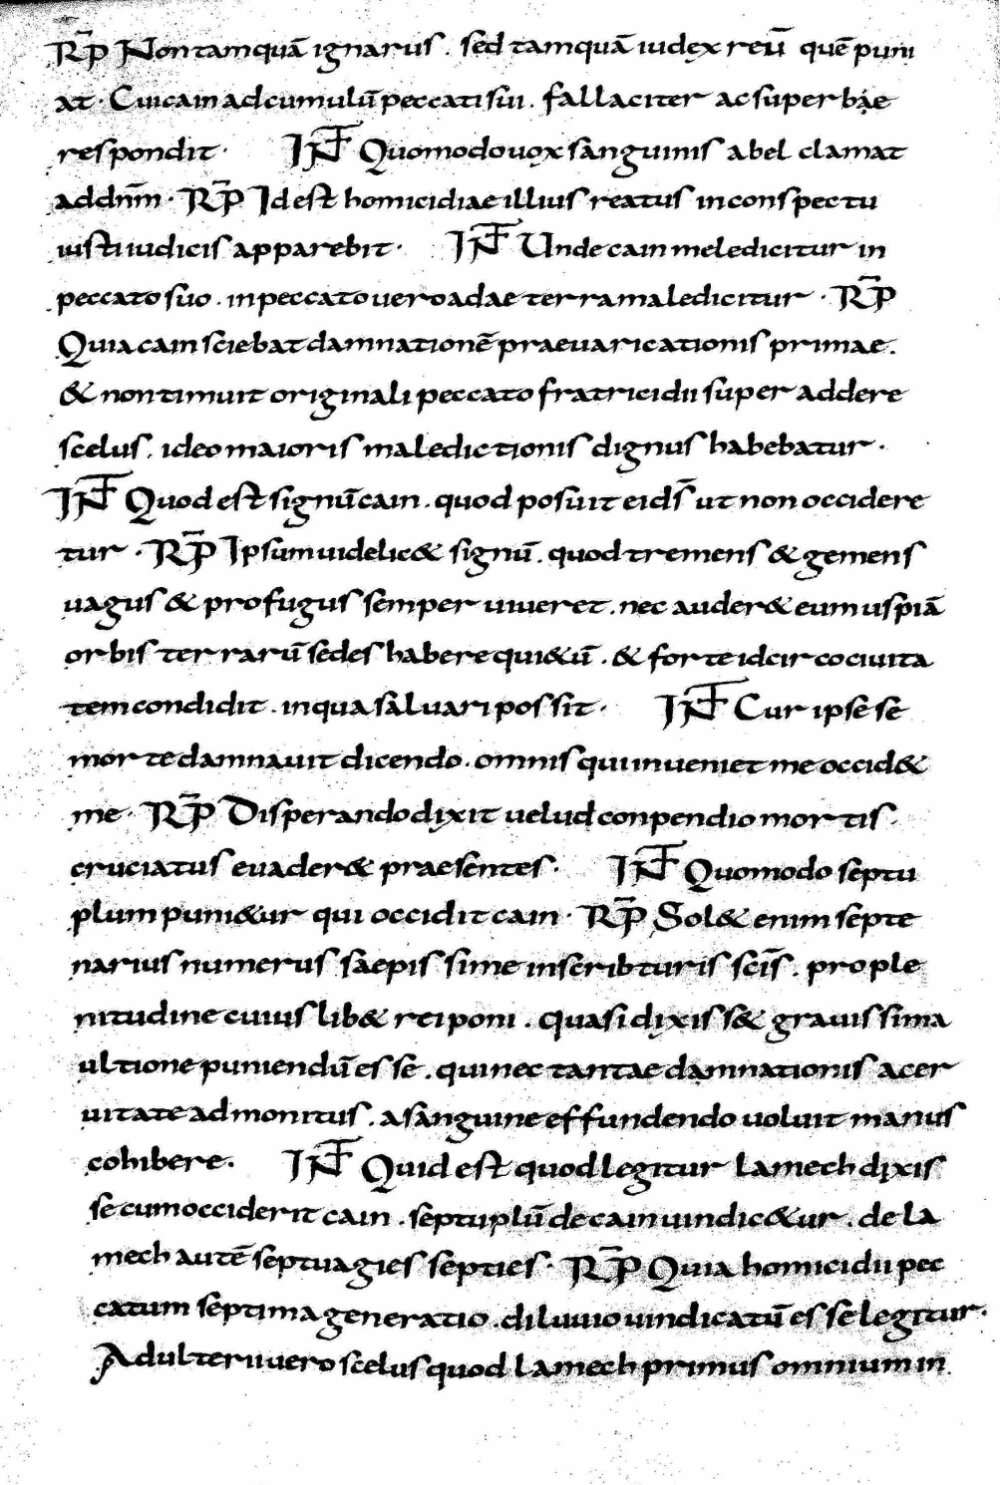 R̄P Non tamquā ignarus . sed tamquā iudex reū quē puni
at . Cui cain ad cumulū peccati sui . fallaciter ac superbae
respondit . INT̄ Quomodo uox sanguinis abel clamat
ad dn̄m . R̄P Id est homicidiae illius reatus in conspectu
iusti iudicis apparebit . INT̄ Unde cain meledicitur in
peccato suo . in peccato uero adae terra maledicitur . R̄P
Quia cain sciebat damnationē praeuaricationis primae .
& non timuit originali peccato fratricidii super addere
scelus . ideo maioris maledictionis dignus habebatur .
INT̄ Quod est signū cain . quod posuit ei ds̄ ut non occidere
tur . R̄P Ipsum uidelic& signū . quod tremens & gemens
uagus & profugus semper uiueret . nec auder& eum uspiā
orbis terrarū sedes habere qui&ū . & forte idcirco ciuita
tem condidit . in qua saluari possit . INT̄ Cur ipse se
morte damnauit dicendo . omnis qui inueniet me occid&
me . R̄P Disperando dixit uelud conpendio mortis .
cruciatus euader& praesentes . INT̄ Quomodo septu
plum puni&ur qui occidit cain . R̄P Sol& enim septe
narius numerus saepissime in scribturis scīs . pro ple
nitudine cuius lib& rei poni . quasi dixiss& grauissima
ultione puniendū esse . qui nec tantae damnationis acer
uitate admonitus . a sanguine effundendo uoluit manus
cohibere . INT̄ Quid est quod legitur lamech dixis
se cum occiderit cain . septuplū de cain uindic&ur . de la
mech autē septuagies septies . R̄P Quia homicidii pec
catum septima generatio . diluuio uindicatū esse legitur .
Adulterii uero scelus quod lamech primus omnium in